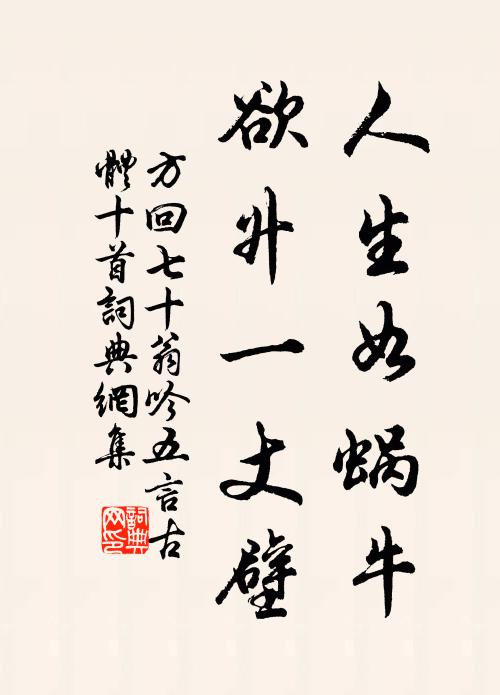 人生如蜗牛
欲升一丈壁
方回七十翁吟五言古
體十首詞典網集
詞典网印